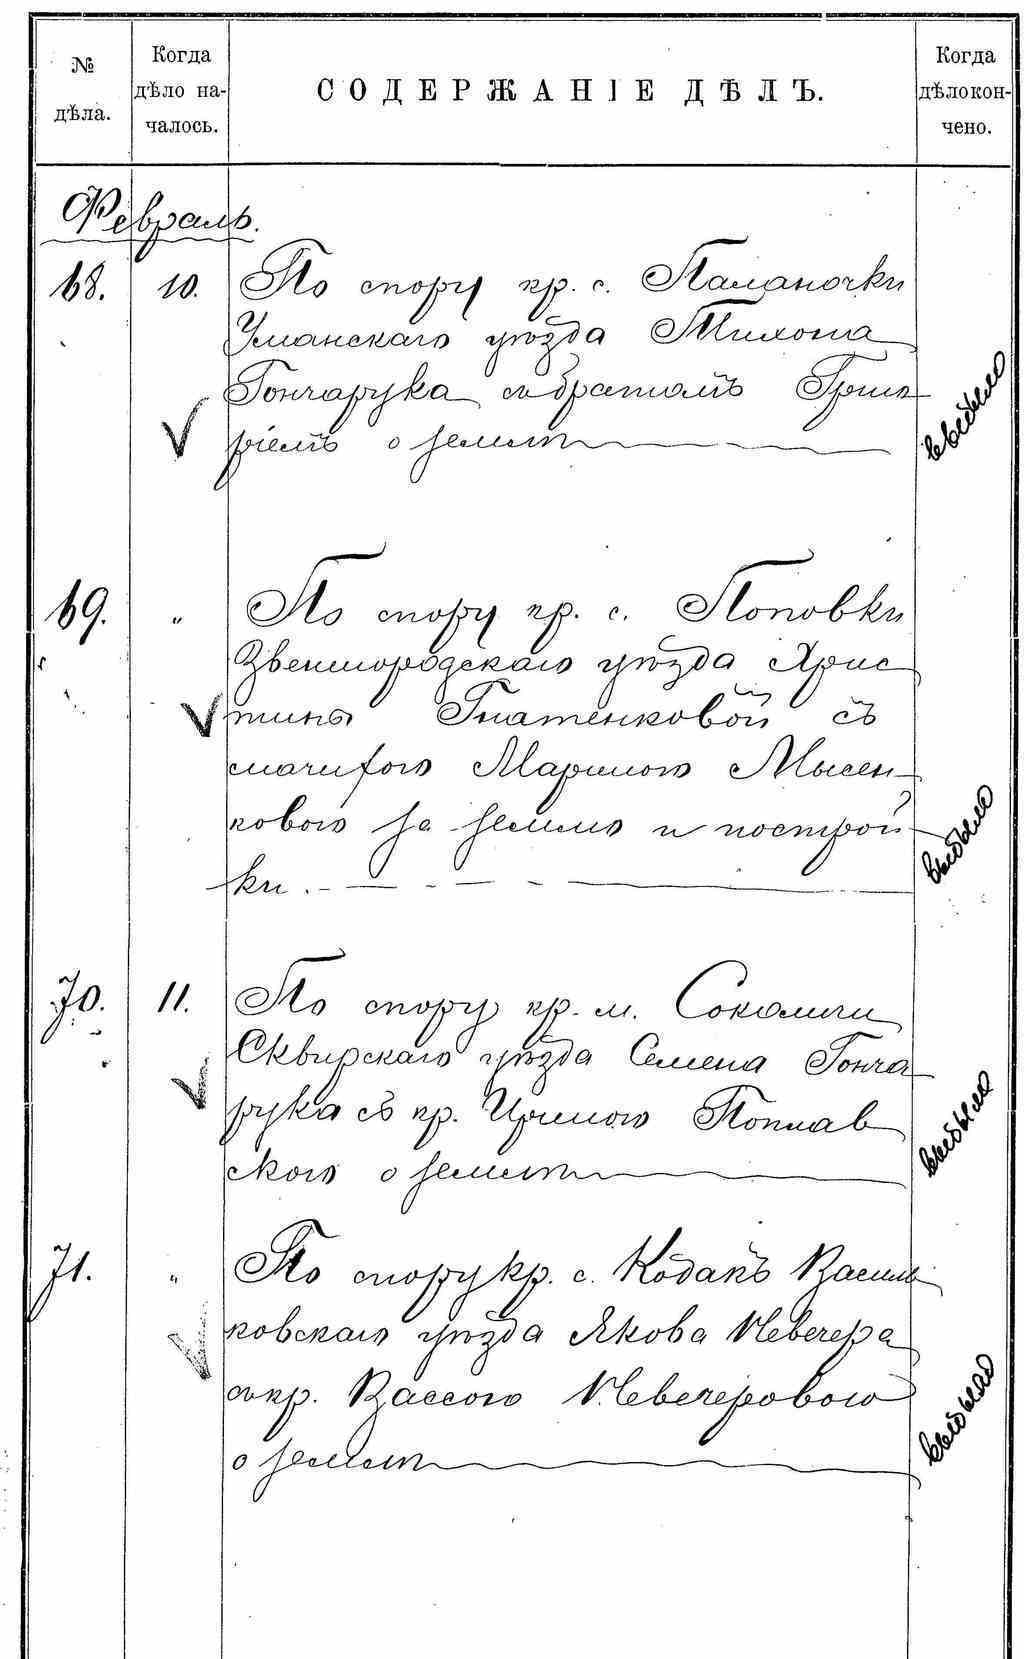 № дѣла.
Когда дѣло на-
чалось.
СОДЕРЖАНІЕ ДѢЛЪ.
Когда дѣло кон-
чено.
Февраль.
68. 10. По спору кр. с. Паланочки
Уманскаго уѣзда Тихона
Гончарука съ братомъ Григо
ріемъ о землѣ
выбыло
69. " По спору кр. с. Поповки
Звенигородскаго уѣзда Хрис
тины Гнатенковой съ
мачихою Мариною Мысен-
ковою за землю и построй
ки.
выбыло
70. 11. По спору кр. м. Соколичи
Сквирскаго уѣзда Семена Гонча
рука съ кр. Ириною Поплав
скою о землѣ
выбыло
71. " По спору кр. с. Кодакъ Василь
ковскаго уѣзда Якова Чевечера
съ кр. Вассою Чевечеровою
о землѣ
выбыло